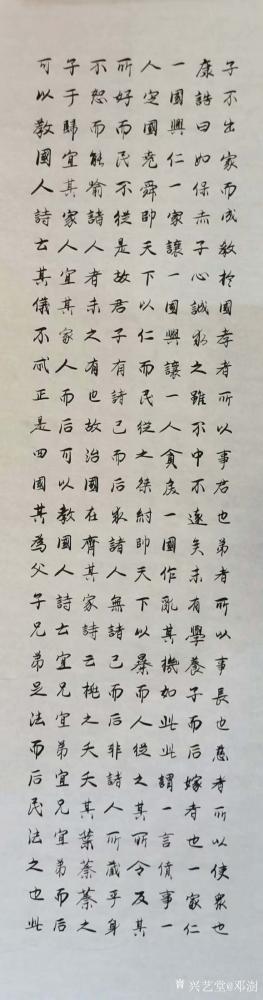 子不出家而成教於國孝者所以事君也弟者所以事長也慈者所以使衆也
康誥曰如保赤子心誠求之雖不中不遠矣未有學養子而后嫁者也一家仁
一國興仁一家讓一國興讓一人貪戾一國作亂其機如此此謂一言僨事一
人定國堯舜帥天下以仁而民從之桀紂帥天下以暴而人從之其所令反其
所好而民不從是故君子有諸己而后求諸人無諸己而后非諸人所藏乎身
不恕而能喻諸人者未之有也故治國在齊其家詩云桃之夭夭其葉蓁蓁之
子于歸宜其家人宜其家人而后可以教國人詩云宜兄宜弟宜兄宜弟而后
可以教國人詩云其儀不忒正是四國其為父子兄弟足法而后民法之也此
兴艺堂@邓澍